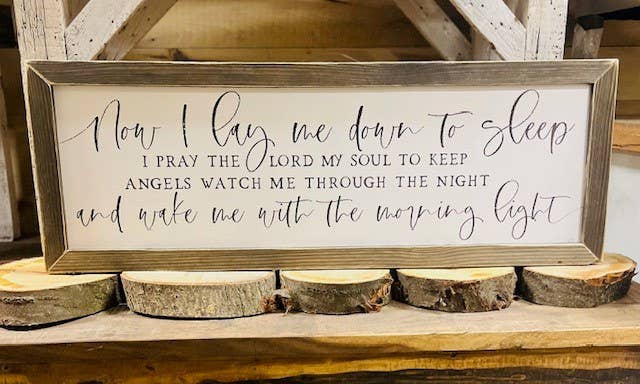 Now I lay me down to sleep
I PRAY THE LORD MY SOUL TO KEEP
ANGELS WATCH ME THROUGH THE NIGHT
and wake me with the morning light